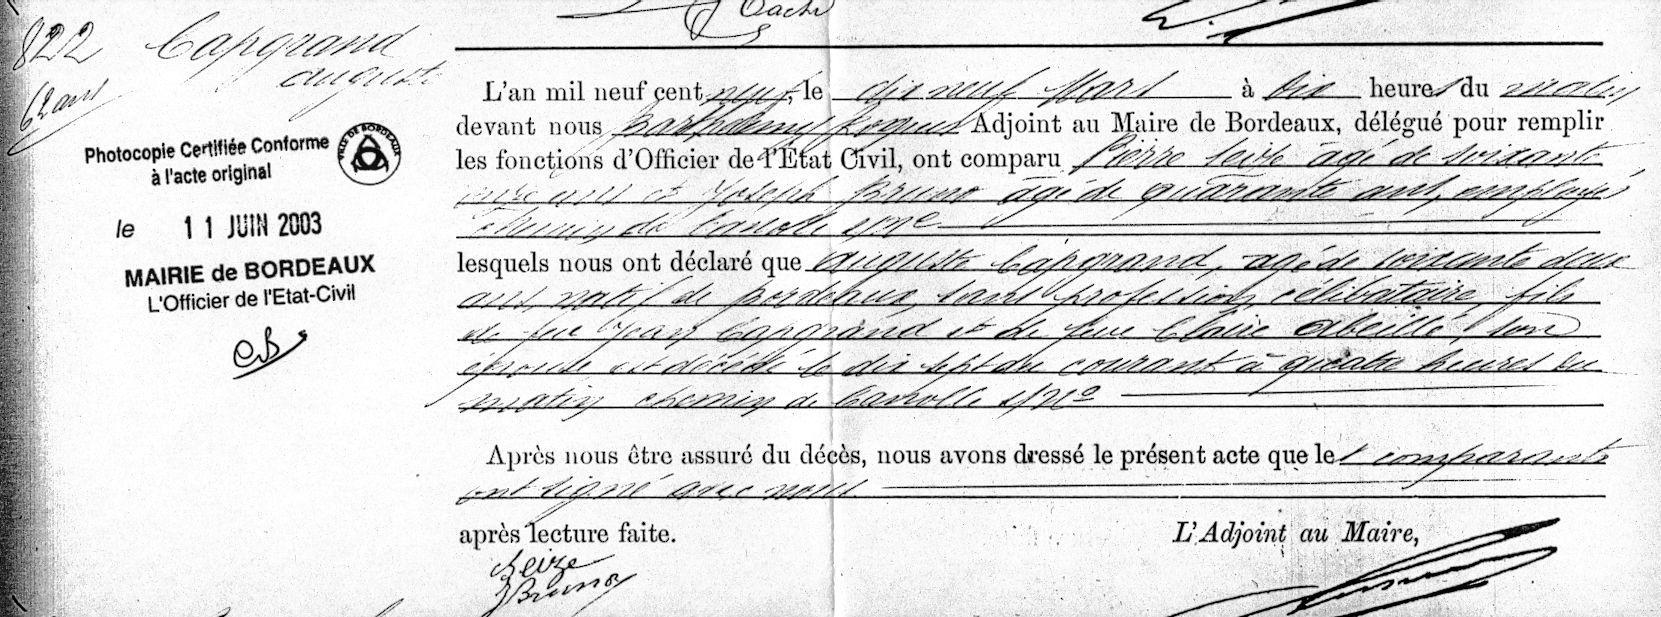 822 Capgrand
auguste
62 ans
Photocopie Certifiée Conforme
à l'acte original
VILLE DE BORDEAUX
le 11 JUIN 2003
MAIRIE de BORDEAUX
L'Officier de l'Etat-Civil
L'an mil neuf cent neuf, le dix neuf Mars à dix heures du matin
devant nous Barthélemy Adjoint au Maire de Bordeaux, délégué pour remplir
les fonctions d'Officier de l'Etat Civil, ont comparu Pierre Seize âgé de soixante
onze ans et Joseph Bruno âgé de quarante ans, employés
chemin de s/Nº
lesquels nous ont déclaré que auguste Capgrand, âgé de soixante deux
ans, natif de bordeaux, sans profession, célibataire, fils
de feu Jean Capgrand et de feue Claire abeillé, son
épouse est décédé le dix sept du courant à quatre heures du
matin chemin de s/Nº
Après nous être assuré du décès, nous avons dressé le présent acte que les comparants
ont signé avec nous
après lecture faite. L'Adjoint au Maire,
Seize
JBruno